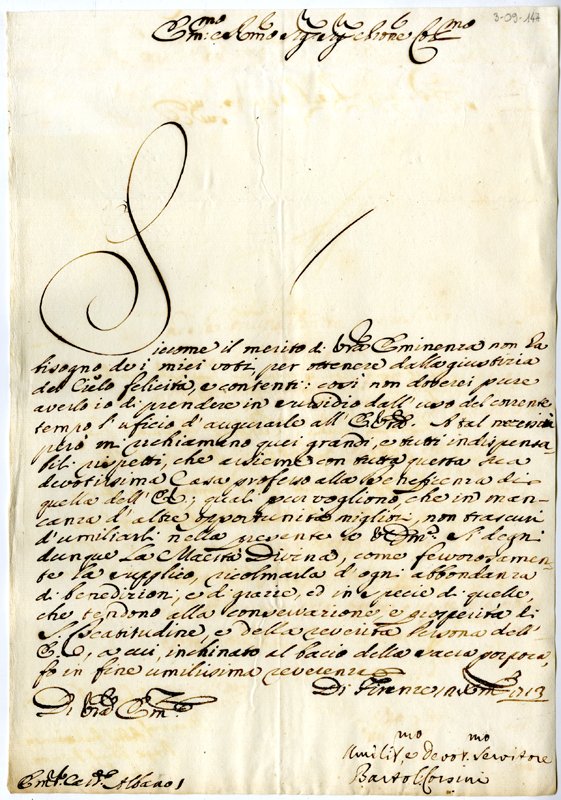 3-09-147
Em:mo e Rmo Sigr Sigr Prone Col:mo
Siccome il merito di Vra Eminenza non ha
bisogno de i miei voti, per ottenere dalla giustizia
del Cielo felicità, e contenti: così non doverei pure
averlo io di prendere in sussidio dall' uso del corrente
tempo l' ufficio d' augurarle all' E.V. A tal
però mi richiamano quei grandi, e tutti indispensa-
bili rispetti, che assieme con tutta questa sua
devotissima Casa professo alla beneficenza di
quella dell' E.V.; quali pur vogliono, che in man-
canza d' altre opportunità migliori, non trascuri
d' umiliarli nella presente. Si degni
dunque la Maestà Divina, come fervorosamen-
te la supplico, ricolmarla d' ogni abbondanza
di benedizioni, e di grazie, ed in specie di quelle,
che tendono alla conservazione, e prosperità di
S. Beatitudine, e della reverita Persona dell'
E.V., a cui, inchinato al bacio della sacra porpora,
fo in fine umilissima reverenza
Di Firenze 1713
Di Vra Em:za
Umiliss:mo e Devot:mo Servitore
Bartol: Corsini
Em:o Card. Albani